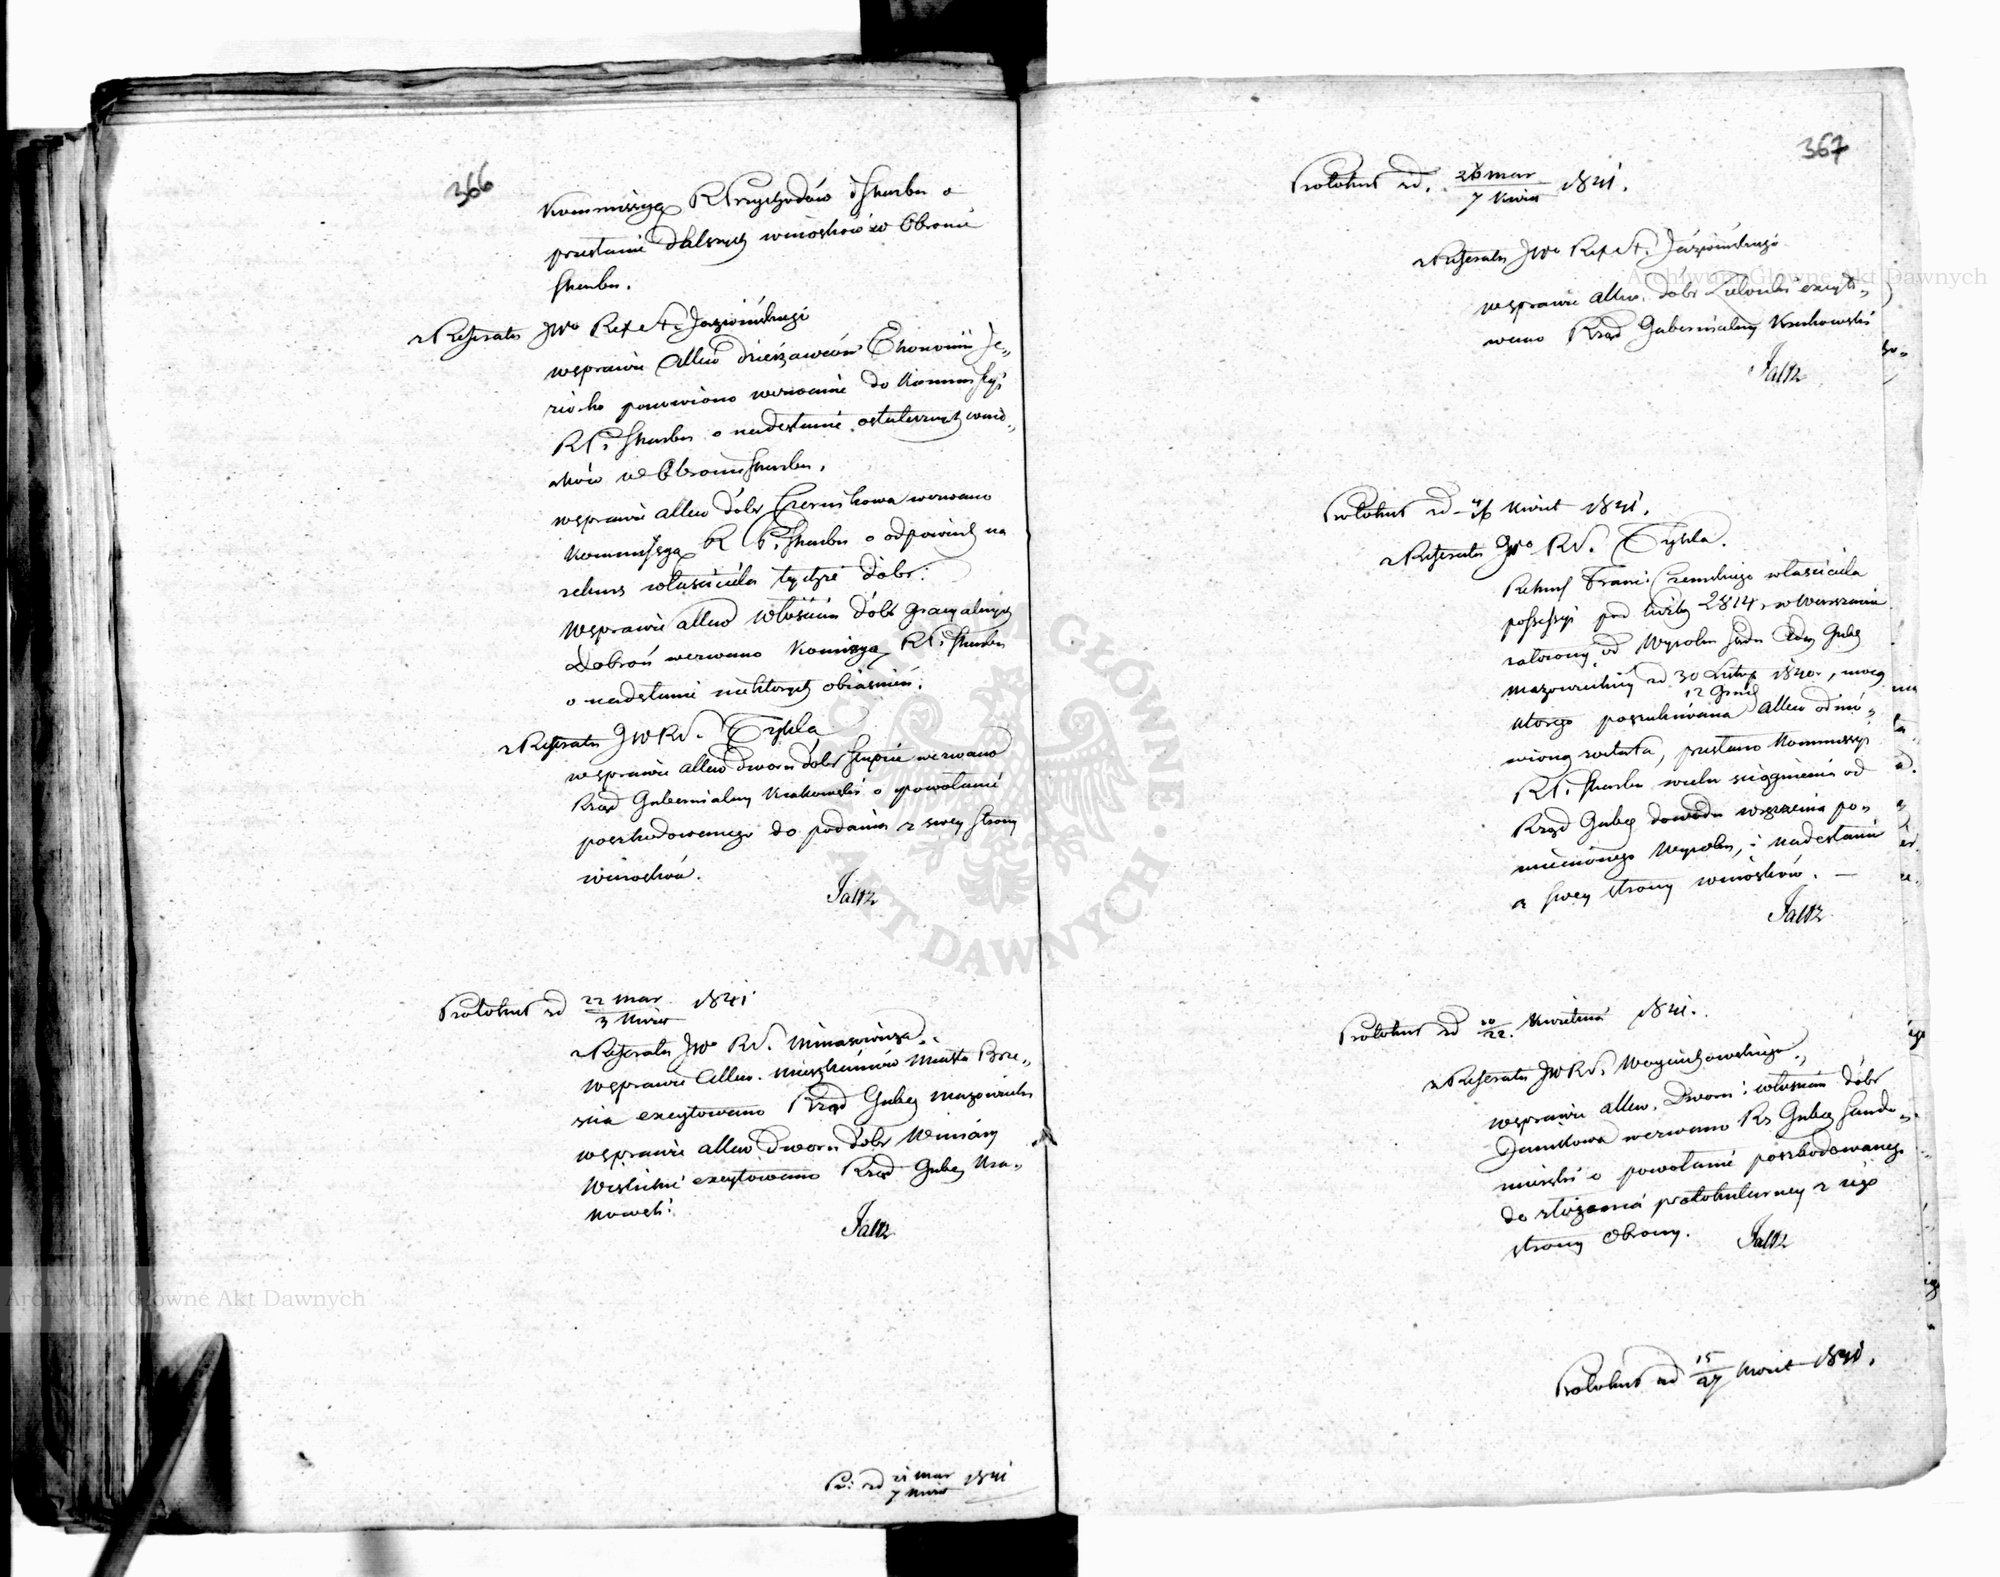 366
Kommissyą R Przychodów i Skarbu o
przesłanie dalszych wniosków w Obronie
Skarbu.
z Referatu JWo Refet. Jazwińskiego
w sprawie allew dzierżawców Ekonomii Je„
ziorko ponowiono wezwanie do Kommissyi
R P i Skarbu o nadesłanie ostatecznych wnio„
sków w Obronie Skarbu.
w sprawie allew dóbr Czernikowa wezwano
Kommissyą R P i Skarbu o odpowiedź na
rekurs właściciela tychże dóbr.
w sprawie allew włościan dóbr
Dobroń wezwano Komissyą R P i Skarbu
o nadesłanie niektórych obiasnień.
z Referatu JW RS. Tykla
w sprawie allew dworu dóbr Słupia wezwano
Rząd Gubernialny Krakowski o powołanie
poszkodowanego do podania z swey strony
wniosków.
Protokuł zd 22 mar / 3 Kwiet 1841
z Referatu JWo RS. Minasowicza.
w sprawie allew. mieszkańców Miasta Brze„
zin excytowano Rząd Gubey Mazowiecki
w sprawie allew dworu dóbr Winiary
Wiślickie excytowano Rząd Gubey Kra„
kowski.
Pr: zd mar / 7 Kwiet 1841
367
Protokuł zd. 26 mar / 7 Kwiet 1841.
z Referatu JWo Refet. Jazwińskiego
w sprawie allew. dóbr excyto„
wano Rząd Gubernialny Krakowski
Protokuł zd 4/16 Kwiet 1841.
z Referatu JWo RS. Tykla.
Rekurs Franc: właściciela
possessyi pod liczbą 2814, w Warszawie
założony od Wyroku Sądu Gubey
Mazowieckiey zd 30 1840, mocą
12 Grud
którego poszukiwana allew odmó„
wioną została, przesłano Kommissyi
R P i Skarbu w celu ściągnienia od
Rząd Gubey dowodu wręczenia po„
mienionego Wyroku, i nadesłania
z swey strony wniosków. —
Protokuł zd 10/22. Kwietnia 1841.
z Referatu JW RS. Woyciechowskiego.
w sprawie allew. Dworu i włościan dóbr
Janikowa wezwano Rz Gubey Sando„
mierski o powołanie poszkodowanego
do złożenia protokularney z iego
strony Obrony.
Protokuł zd 15/27 Kwiet 1841.
Archiwum Główne Akt Dawnych
Archiwum Główne Akt Dawnych
GŁÓWNE · AKT DAWNYCH ·